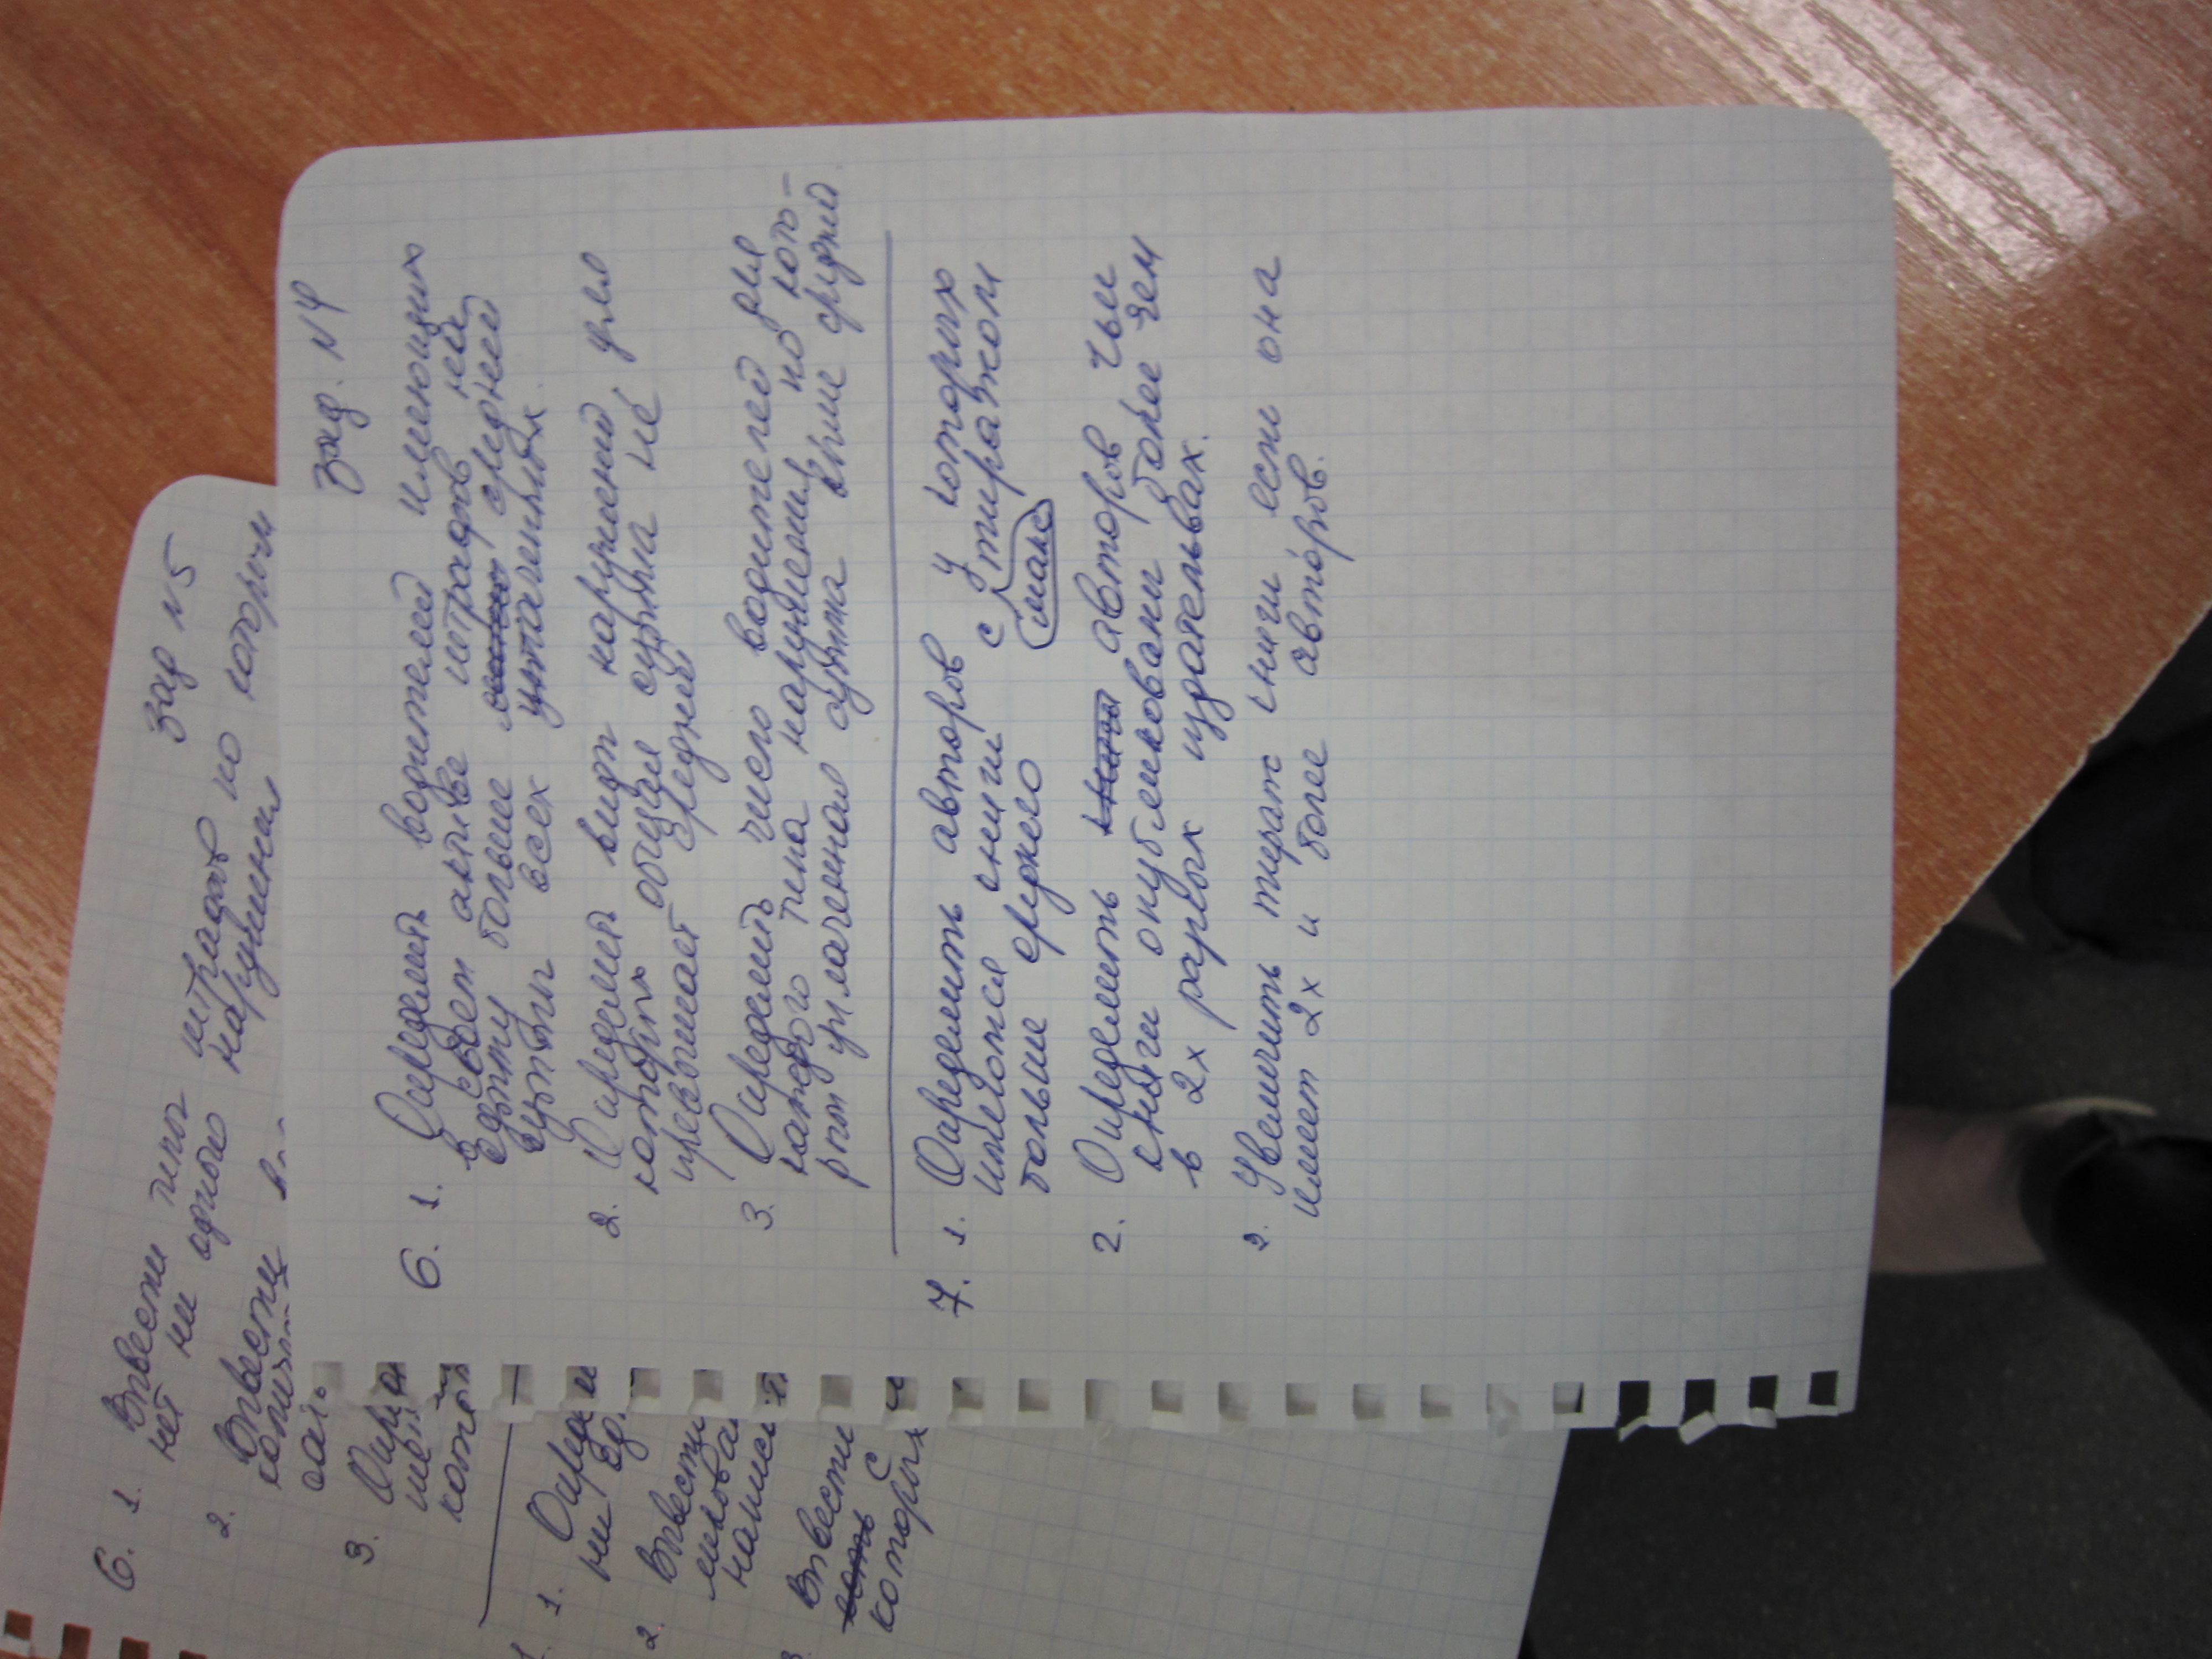 зад N5
6. 1. Вывести типы штрафов по которым
нет ни одного нарушения
2. Вывести
3.
1. 1.
ни
2. Вывести
3. Вывести
с
которых
зад. N4
6. 1. Определить водителей имеющих
в своем активе штрафов на
сумму больше средней
суммы всех уплаченных
2. Определить виды нарушений, для
которых общая сумма не
превышает средний
3. Определить число водителей для
каждого типа нарушения, по кото-
рым уплаченная сумма выше средней
7. 1. Определить авторов у которых
имеются книги с макс тиражом
больше среднего
2. Определить авторов, чьи
книги опубликованы более чем
в 2х разных издательвах.
3. Увеличить тираж книги, если она
имеет 2х и более авторов.